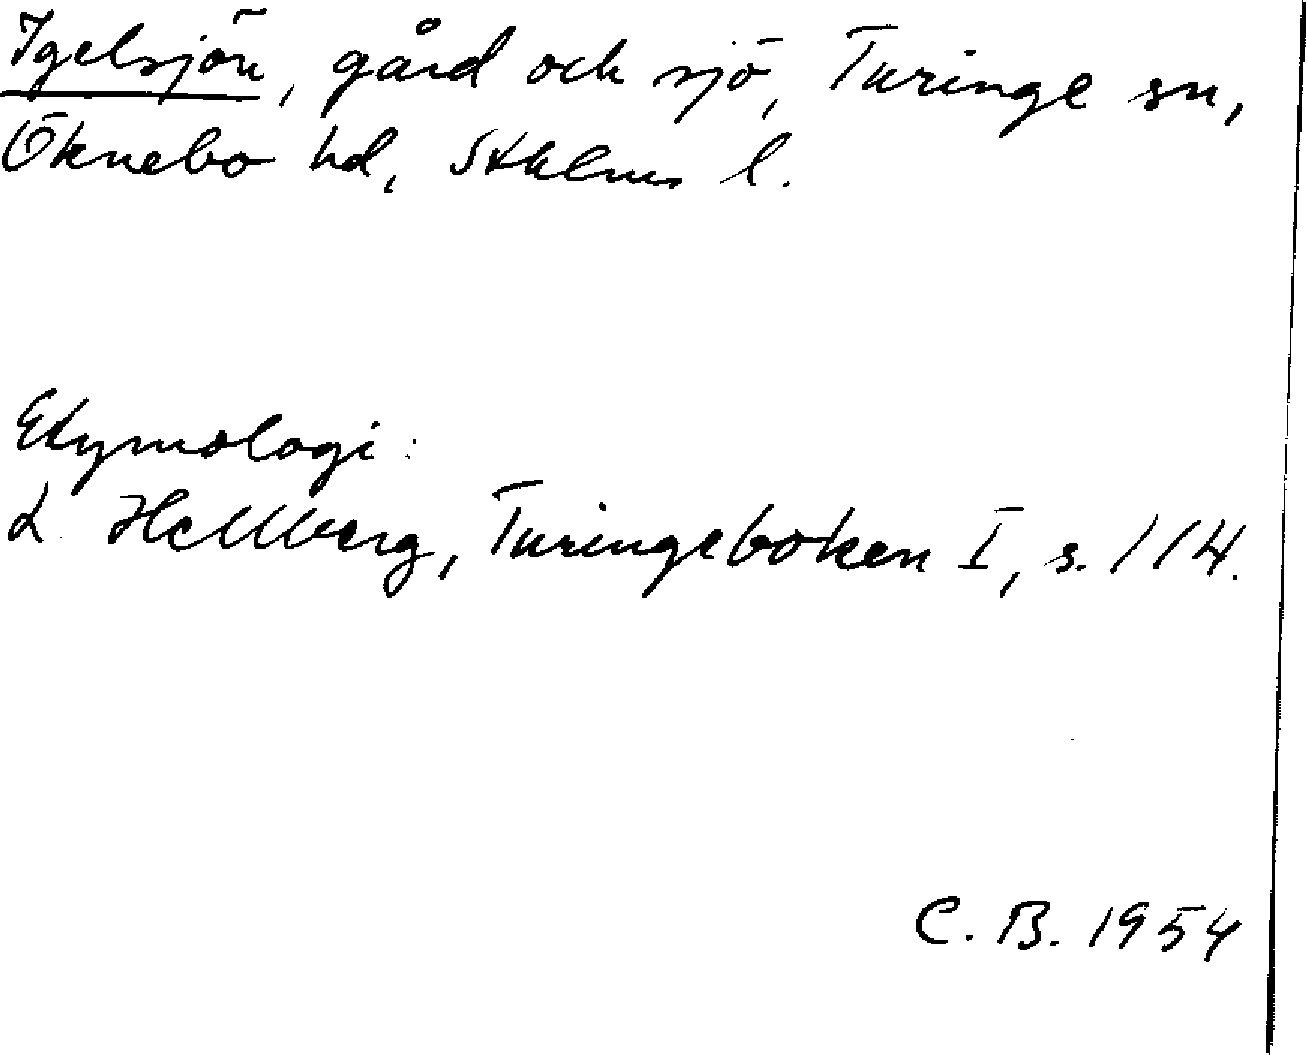 Igelsjön, gård och sjö, Turinge sn,
Öknebo hd, Sthlms l.
Etymologi:
L. Hellberg, Turingeboken I, s. 114.
C. B. 1954